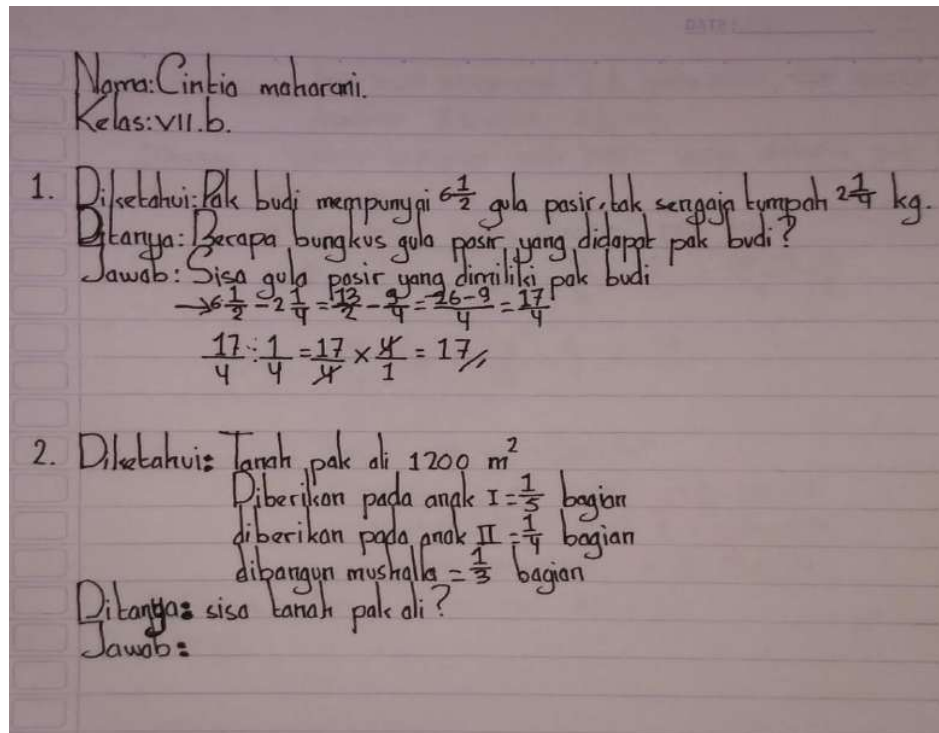 Nama: Cintia maharani.
Kelas: VII.b.
1. Diketahui: Pak budi mempunyai 6 1/2 gula pasir, tak sengaja tumpah 2 1/4 kg.
Ditanya: Berapa bungkus gula pasir yang didapat pak budi?
Jawab: Sisa gula pasir yang dimiliki pak budi
→ 6 1/2 - 2 1/4 = 13/2 - 9/4 = 26-9/4 = 17/4
17/4 : 1/4 = 17/4 × 4/1 = 17//
2. Diketahui: Tanah pak ali 1200 m²
Diberikan pada anak I = 1/5 bagian
diberikan pada anak II = 1/4 bagian
dibangun musholla = 1/3 bagian
Ditanya: sisa tanah pak ali?
Jawab: